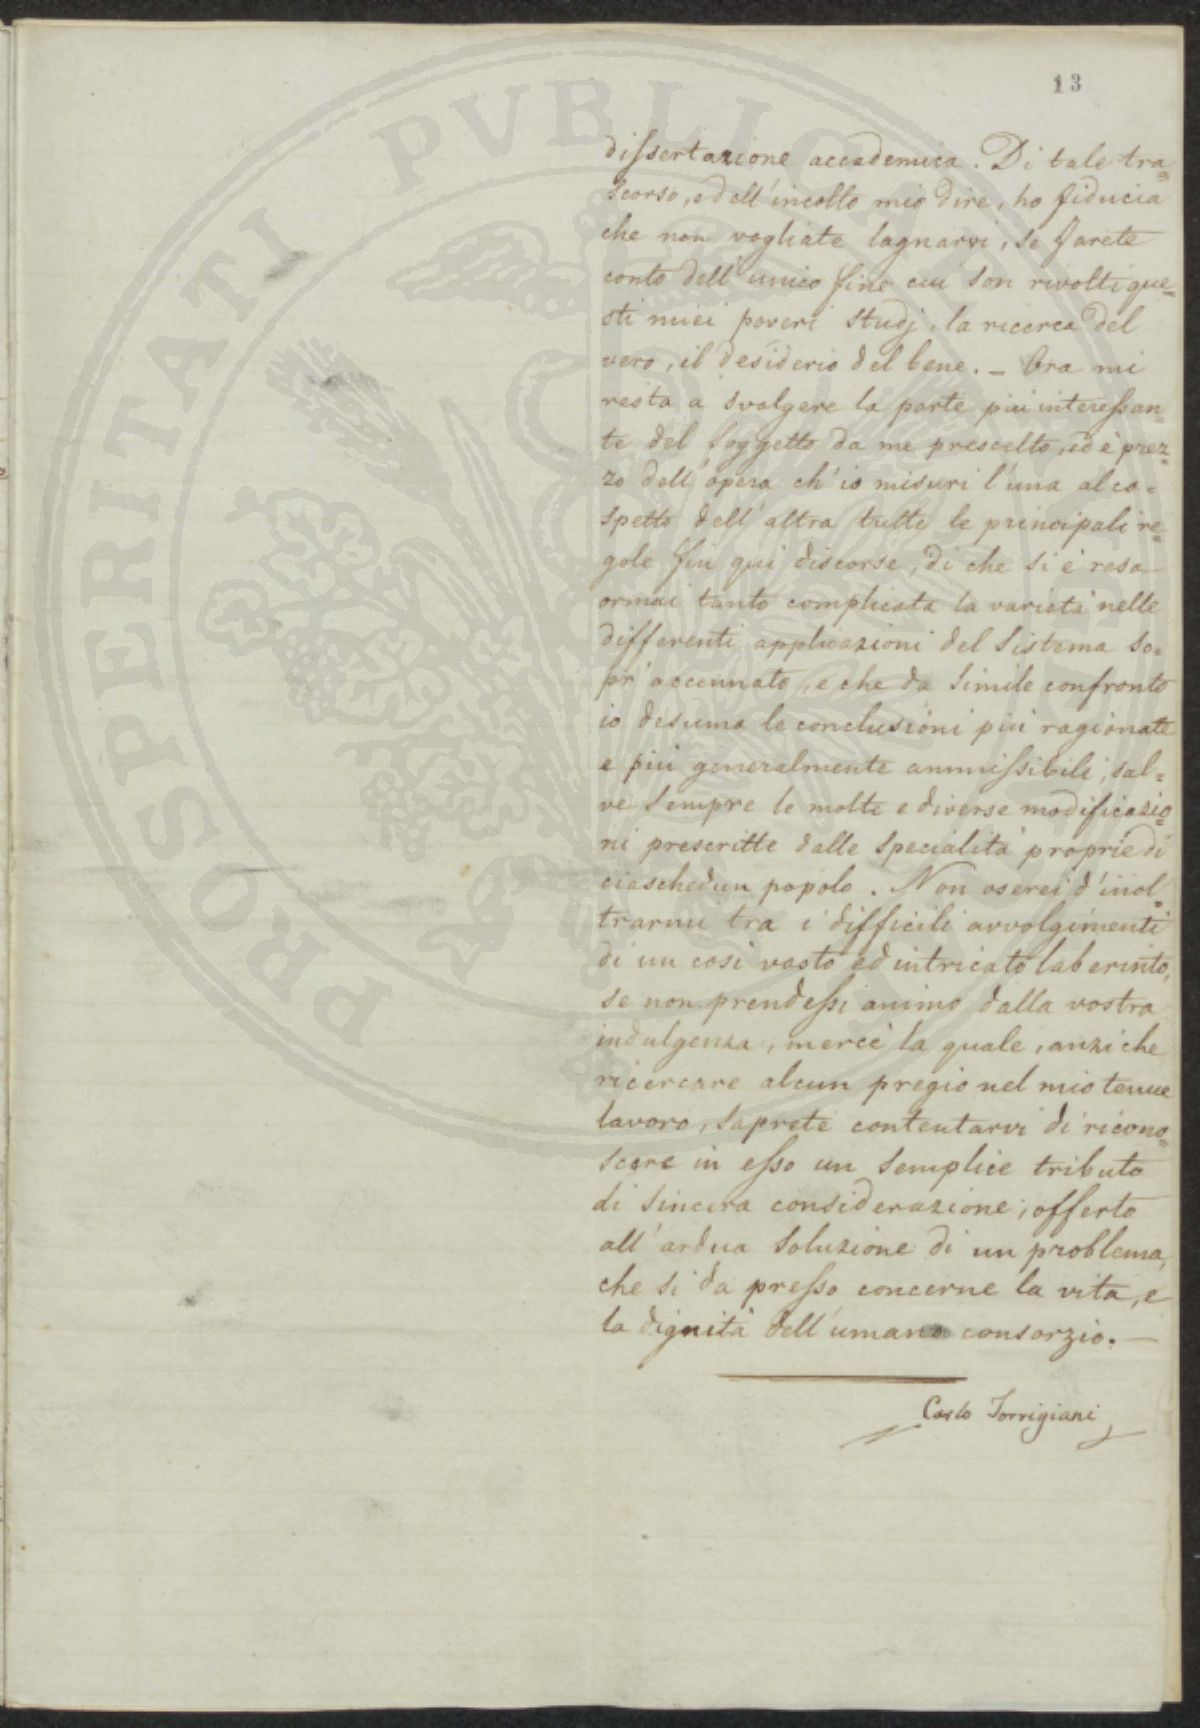 13
dissertazione accademica. Di tale tra=
scorso, ed ell'incolto mio dire, ho fiducia
che non vogliate lagnarvi, se farete
conto dell'unico fine cui son rivolti que=
sti miei poveri studj, la ricerca del
vero, il desiderio del bene. _ Ora mi
resta a svolgere la parte più interessan=
te del soggetto da me prescelto, ed è prez=
zo dell'opera ch'io misuri l'una al co=
spetto dell'altra tutte le principali re=
gole fin qui discorse, di che si è resa
ormai tanto complicata la varietà nelle
differenti applicazioni del sistema so=
pr'accennato, e che da simile confronto
io desuma le conclusioni più ragionate
e più generalmente ammissibili, sal=
ve sempre le molte e diverse modificazio=
ni prescritte dalle specialità proprie di
ciaschedun popolo. Non oserei d'inol=
trarmi tra i difficili avvolgimenti
di un così vasto ed intricato laberinto,
se non prendessi animo dalla vostra
indulgenza, mercè la quale, anziche
ricercare alcun pregio nel mio tenue
lavoro, saprete contentarvi di ricono=
scere in esso un semplice tributo
di sincera considerazione, offerto
all'ardua soluzione di un problema,
che si da presso concerne la vita, e
la dignità dell'umano consorzio. —
Carlo Torrigiani
PROSPERITATI PVBLICAE